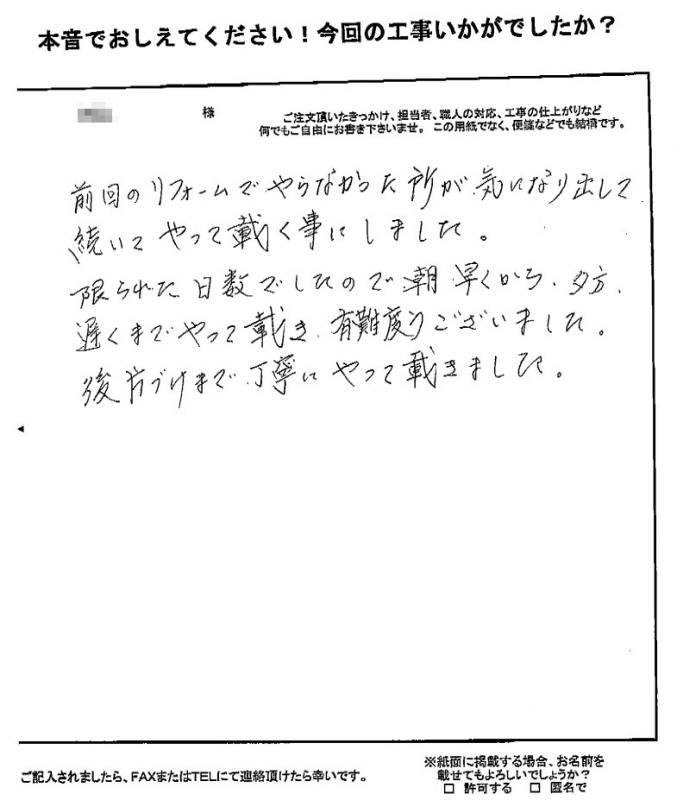 本音でおしえてください！今回の工事いかがでしたか？
様
ご注文頂いたきっかけ、担当者、職人の対応、工事の仕上がりなど
何でもご自由にお書き下さいませ。この用紙でなく、便箋などでも結構です。
前回のリフォームでやらなかった所が気になり出して
続いてやって載く事にしました。
限られた日数でしたので朝早くから、夕方、
遅くまでやって載き、有難度うございました。
後片づけまで丁寧にやって載きました。
ご記入されましたら、FAXまたはTELにて連絡頂けたら幸いです。
※紙面に掲載する場合、お名前を
載せてもよろしいでしょうか？
□ 許可する □ 匿名で